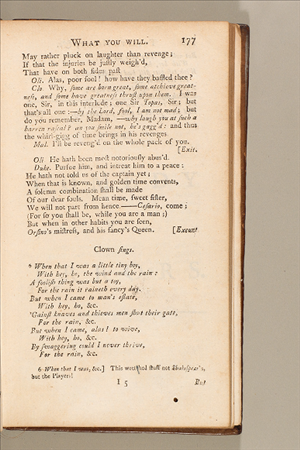 WHAT YOU WILL. 177
May rather pluck on laughter than revenge;
If that the injuries be justly weigh'd,
That have on both sides past
Oli. Alas, poor fool! how have they baffled thee?
Clo Why, some are born great, some atchieve great-
ness, and some have greatness thrust upon them. I was
one, Sir, in this interlude; one Sir Topas, Sir; but
that's all one:—by the Lord, fool, I am not mad; but
do you remember, Madam, —why laugh you at such a
barren rascal? an you smile not, he's gagg'd: and thus
the whirl-gigg of time brings in his revenges
Mal. I'll be reveng'd on the whole pack of you.
[Exit.
Oli He hath been most notoriously abus'd.
Duke. Pursue him, and intreat him to a peace:
He hath not told us of the captain yet;
When that is known, and golden time convents,
A solemn combination shall be made
Of our dear souls. Mean time, sweet sister,
We will not part from hence ——Cesario, come;
(For so you shall be, while you are a man;)
But when in other habits you are seen,
Orsino's mistress, and his fancy's Queen. [Exeunt
Clown sings.
6 When that I was a little tiny boy,
With hey, ho, the wind and the rain:
A foolish thing was but a toy,
For the rain it raineth every day.
But when I came to man's estate,
With hey, ho, &c.
'Gainst knaves and thieves men shut their gate,
For the rain, &c.
But when I came, alas! to wive,
With hey, ho, &c.
By swaggering could I never thrive,
For the rain, &c.
6 When that I was, &c.] This wretched stuff not Shakespear's,
but the Players!
I 5 But